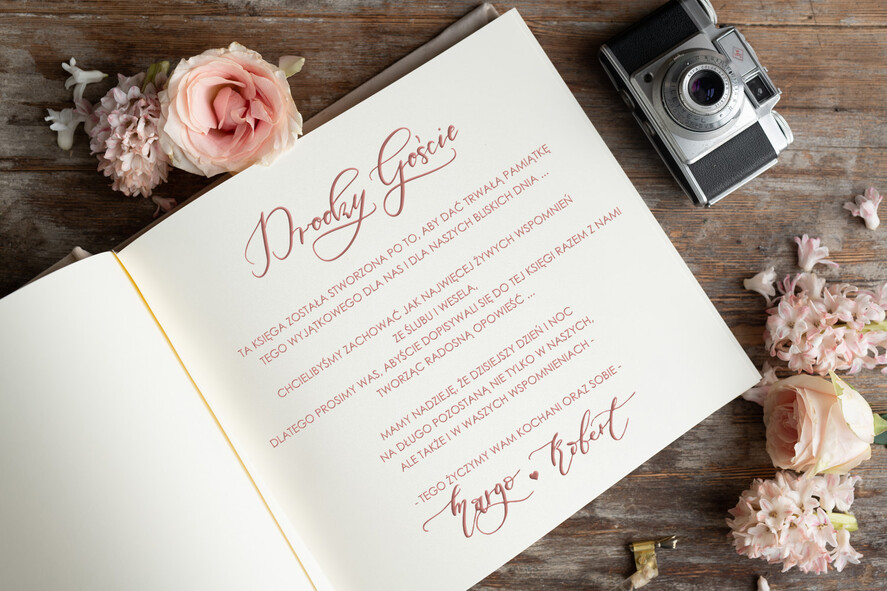 Drodzy Goście
TA KSIĘGA ZOSTAŁA STWORZONA PO TO, ABY DAĆ TRWAŁĄ PAMIĄTKĘ
TEGO WYJĄTKOWEGO DLA NAS I DLA NASZYCH BLISKICH DNIA ...
CHCIELIBYŚMY ZACHOWAĆ JAK NAJWIĘCEJ ŻYWYCH WSPOMNIEŃ
ZE ŚLUBU I WESELA,
DLATEGO PROSIMY WAS, ABYŚCIE DOPSYWALI SIĘ DO TEJ KSIĘGI RAZEM Z NAMI
TWORZĄC RADOSNĄ OPOWIEŚĆ ...
MAMY NADZIEJĘ, ŻE DZISIEJSZY DZIEŃ I NOC
NA DŁUGO POZOSTANĄ NIE TYLKO W NASZYCH,
ALE TAKŻE I W WASZYCH WSPOMNIENIACH -
- TEGO ŻYCZYMY WAM KOCHANI ORAZ SOBIE -
Margo ♥ Robert